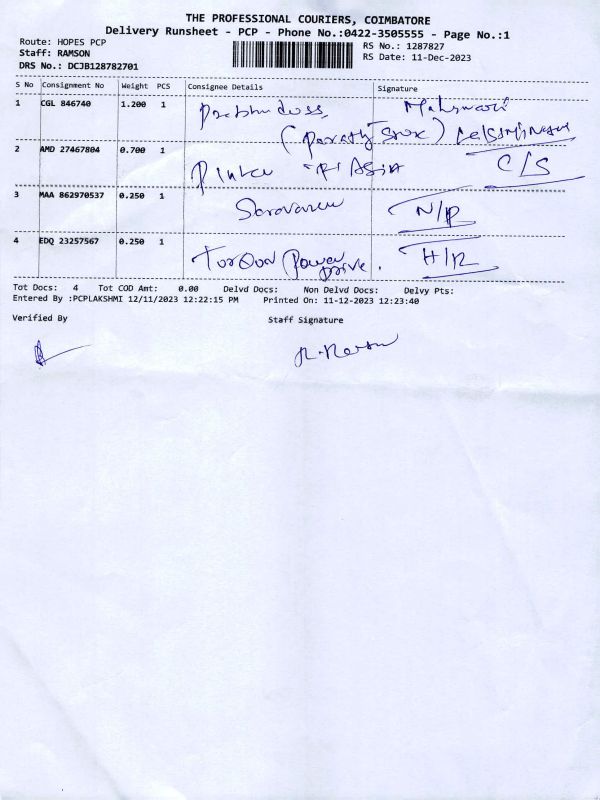 THE PROFESSIONAL COURIERS, COIMBATORE
Delivery Runsheet - PCP - Phone No.:0422-3505555 - Page No.:1
Route: HOPES PCP
Staff: RAMSON
DRS No.: DCJB128782701
RS No.: 1287827
RS Date: 11-Dec-2023
S No Consignment No Weight PCS Consignee Details Signature
1 CGL 846740 1.200 1
2 AMD 27467804 0.700 1 C/S
3 MAA 862970537 0.250 1 N/P
4 EDQ 23257567 0.250 1 Power H/R
Drive.
Tot Docs: 4 Tot COD Amt: 0.00 Delvd Docs: Non Delvd Docs: Delvy Pts:
Entered By :PCPLAKSHMI 12/11/2023 12:22:15 PM Printed On: 11-12-2023 12:23:40
Verified By Staff Signature